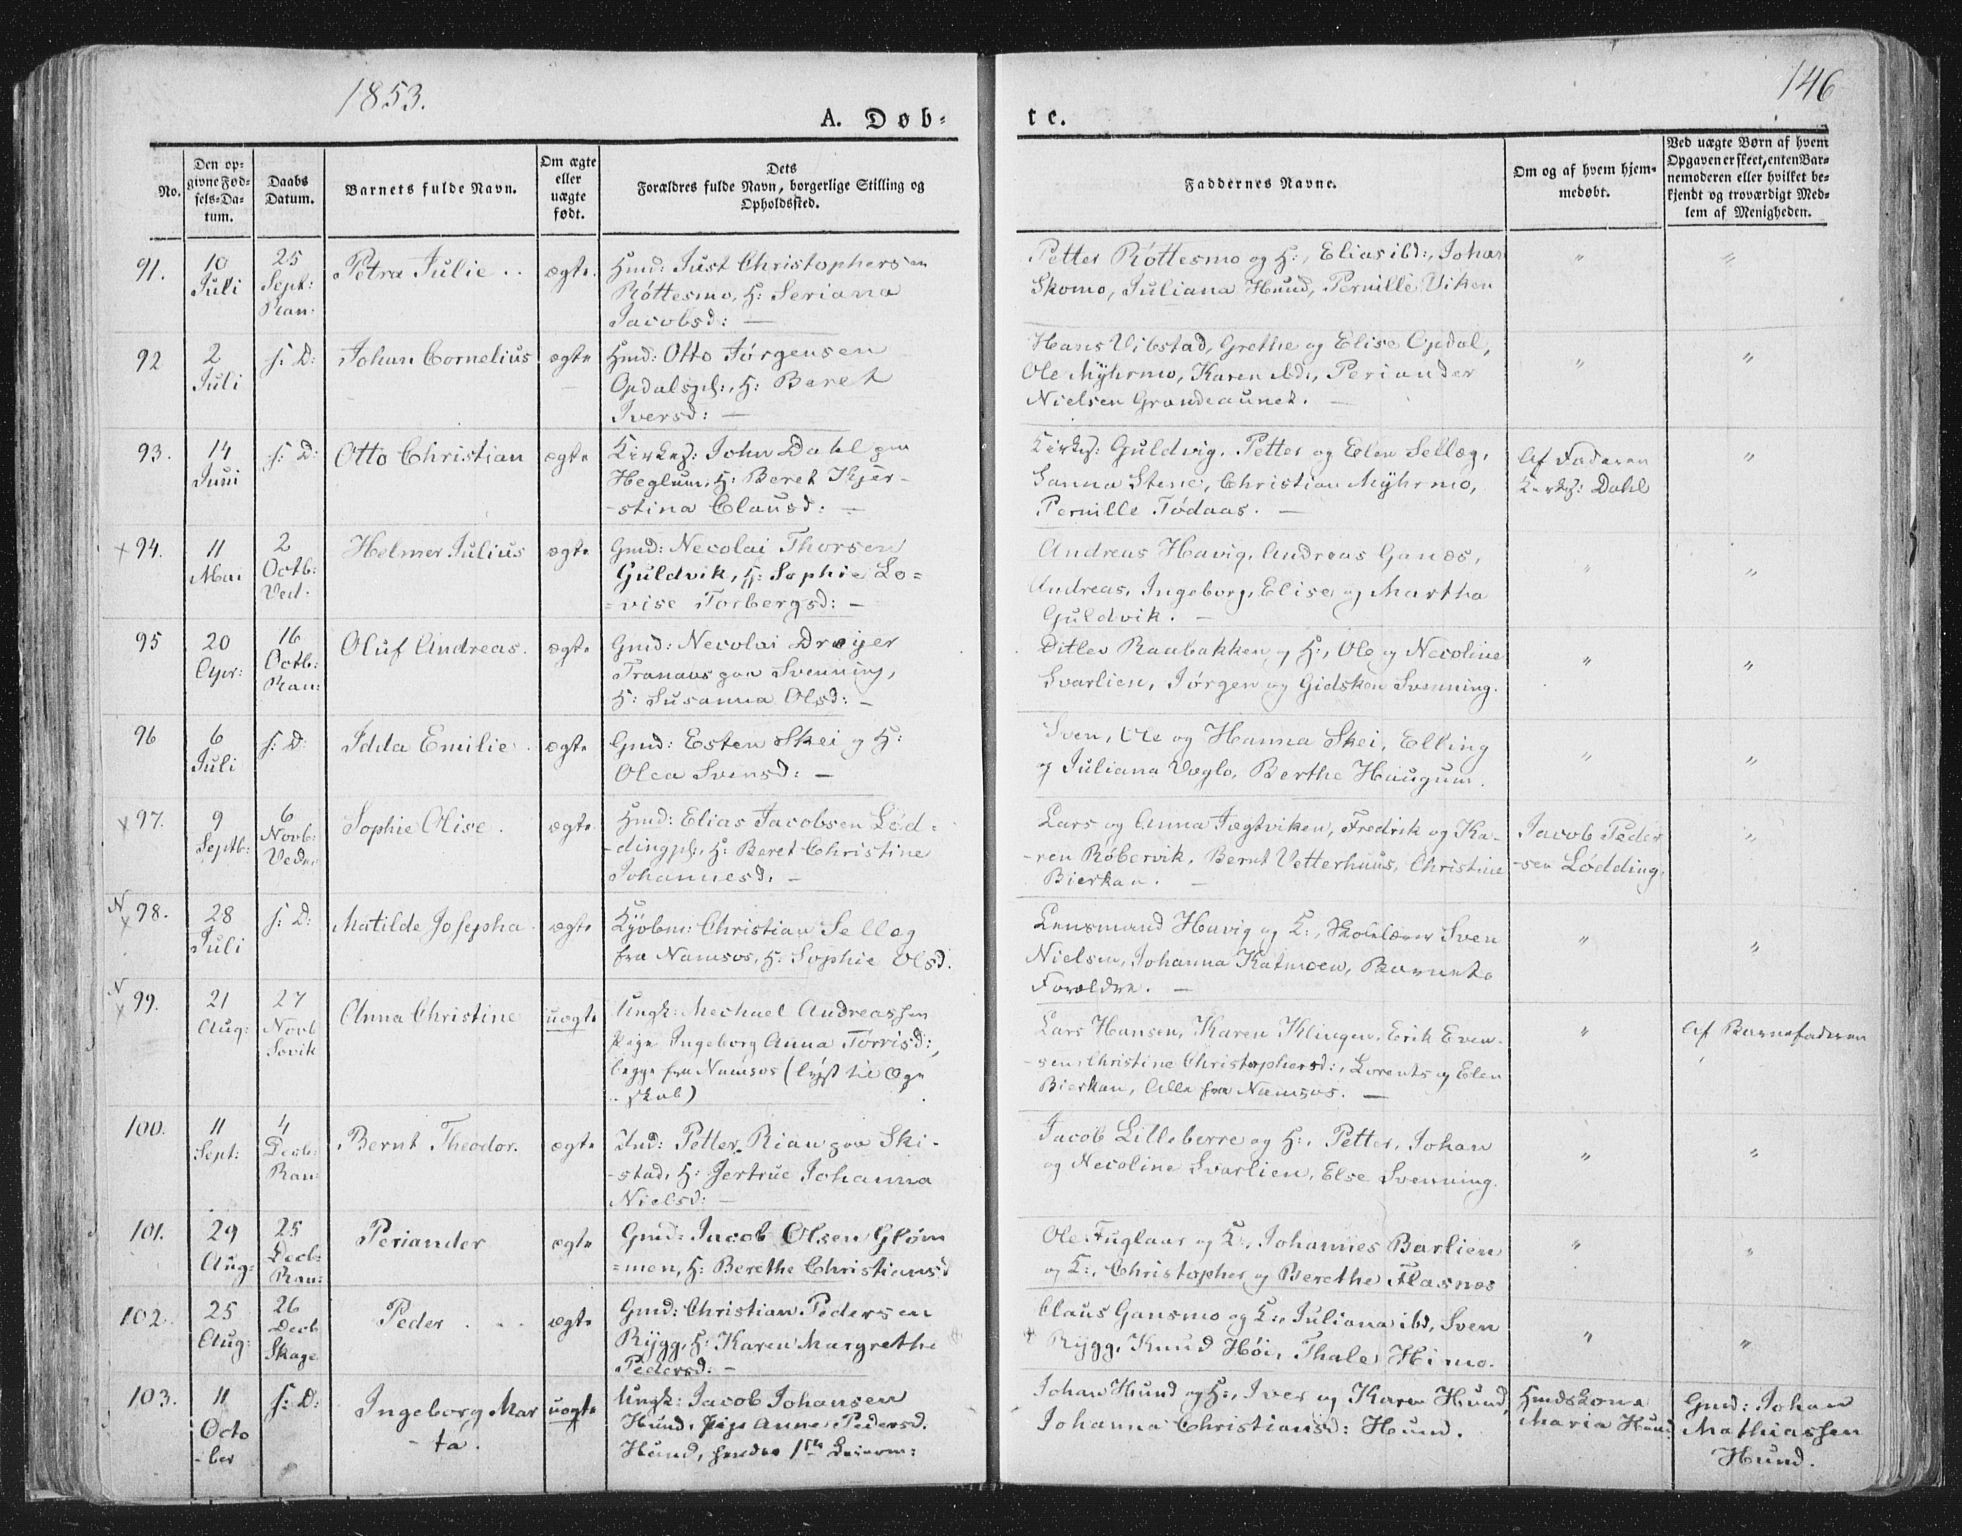 1853.
146
A. Døb-
te.
No.
Den op-
givne Fød-
sels-Da-
tum.
Daabs
Datum.
Barnets fulde Navn.
Om ægte
eller
uægte
født.
Dets
Forældres fulde Navn, borgerlige Stilling og
Opholdssted.
Faddernes Navne.
Om og af hvem hjem-
medøbt.
Ved uægte Børn af hvem
Opgaven er skeet, enten Bar-
nemoderen eller hvilket be-
kjendt og troværdigt Med-
lem af Menigheden.
91.
10
Juli
25
Sept:
Ran:
Petra Julie
ægte.
Hmd: Just Christophersen
Røttesmo, H: Seriana
Jacobsd: —
Petter Røttesmo og H:, Elias ibd:, Johan
Skomo, Juliana Hund, Pernille Viken
"
"
92
2
Juli
s: D:
Johan Cornelius
ægte
Hmd: Otto Jørgensen
Opdalspl:, H: Beret
Iversd: —
Hans Vibstad, Grethe og Elise Opdal,
Ole Myhrmo, Karen ibd:, Periander
Nielsen Grandeaunet. —
"
"
93.
14
Juni
s: D:
Otto Christian
ægte
Kirkes: John Dahl paa
Heglum, H: Beret Kjer-
-stina Clausd: —
Kirkes: Guldvig, Petter og Elen Sellæg,
Sanna Stene, Christian Myhrmo,
Pernille Tødaas. —
Af Faderen
Kirkes: Dahl
"
x 94.
11
Mai
2
Octb:
Ved.
Helmer Julius
ægte
Gmd: Necolai Thorsen
Guldvik, H: Sophie Lo=
=vise Torbergsd: —
Andreas Havig, Andreas Ganæs,
Andreas, Ingeborg, Elise og Martha
Guldvik. —
"
"
95
20
Apr:
16
Octb:
Ran:
Oluf Andreas.
ægte
Gmd: Necolai Drøyer
Tranaas paa Svenning,
H: Susanna Olsd: —
Ditlev Raubakken og H:, Ole og Necoline
Svarlien, Jørgen og Gidsken Svenning.
"
"
96
6
Juli
s: D:
Idda Emilie
ægte
Gmd: Esten Skei og H:
Olea Svensd: —
Sven, Ole og Hanna Skei, Elling
og Juliana Voglo, Berthe Haugum.
"
"
x 97.
9
Septb:
6
Novb:
Vedn
Sophie Olise.
ægte
Hmd: Elias Jacobsen Lød=
-dingpl:, H: Beret Christine
Johannesd: —
Lars og Anna Jægtviken, Fredrik og Ka-
-ren Røbervik, Bernt Vetterhuus, Christine
Bierkan. —
Jacob Peder
-sen Lødding.
"
N
x 98.
28
Juli
s: D:
Matilde Josepha
ægte
Kjøbm: Christian Sellæg
fra Namsos, H: Sophie Olsd.
Lensmand Havig og K:, Skolelærer Sven
Nielsen, Johanna Katmoen, Barnets
Forældre. —
"
"
N
x 99.
21
Aug:
27
Novb
Sævik
Anna Christine
uægte
Ungk: Mechael Andreassen
Pige Ingeborg Anna Torrisd:,
begge fra Namsos (lyst til Ægte
skab)
Lars Hansen, Karen Klingen, Erik Even-
sen, Christine Christophersd:, Lorents og Elen
Bierkan, Alle fra Namsos. —
"
Af Barnefaderen
100.
11
Sept:
4
Decb:
Ran:
Bernt Theodor.
ægte
Ind: Petter Rian paa Ski-
-stad, H: Jertrue Johanna
Nielsd: —
Jacob Lilleberre og H:, Petter, Johan
og Necoline Svarlien, Else Svenning.
"
"
101.
29
Aug:
25
Decb:
Ran:
Periander
ægte
Gmd: Jacob Olsen Gløm
=men, H: Berethe Christiansd
Ole Fuglaar og K:, Johannes Barlien
og K:, Christopher og Berethe Flasnæs
"
"
102.
25
Aug:
26
Decb
Skage
Peder . . .
ægte
Gmd: Christian Pedersen
Rygg, H: Karen Margrethe
Pedersd: —
Claus Gansmo og K:, Juliana ibd, Sven
Rygg, Knud Høi, Thale Himo.
"
"
103.
11
Octo
-ber
s: D:
Ingeborg Mar
-ta.
uægte
Ungk: Jacob Johansen
Hund, Pige Anne Pedersd.
Hund, hendes 1ste Leierm:
Johan Hund og H:, Iver og Karen Hund,
Johanna Christiansd: Hund.
Hmdskone
Maria Hund
Gmd: Johan
Mathiassen
Hund.